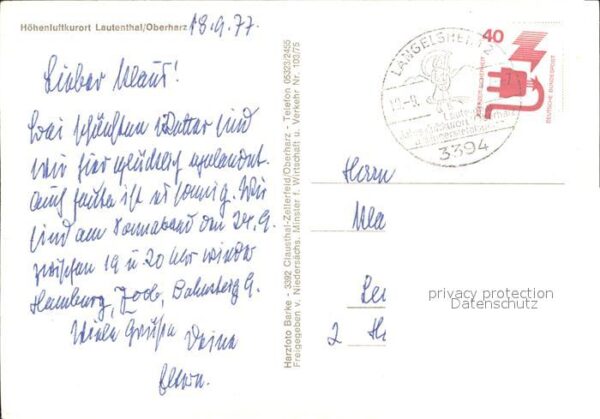 Höhenluftkurort Lautenthal/Oberharz
18.9.77.
Lieber Klaus!
Bei schönstem Wetter sind
wir hier glücklich gelandet.
Auch heute ist es sonnig. Wir
sind am Sonnabend den 24.9.
zwischen 19 u 20 Uhr wieder
Hamburg, Zoob, Bahnsteig 9.
Viele Grüße Deine
Eltern.
Harzfoto Barke - 3392 Clausthal-Zellerfeld/Oberharz - Telefon 05323/2455
Freigegeben v. Niedersächs. Minster f. Wirtschaft u. Verkehr Nr. 103/75
LANGELSHEIM
3394
40
JEDERZEIT SICHERHEIT
DEUTSCHE BUNDESPOST
Herrn
Kla
2 H
privacy protection
Datenschutz